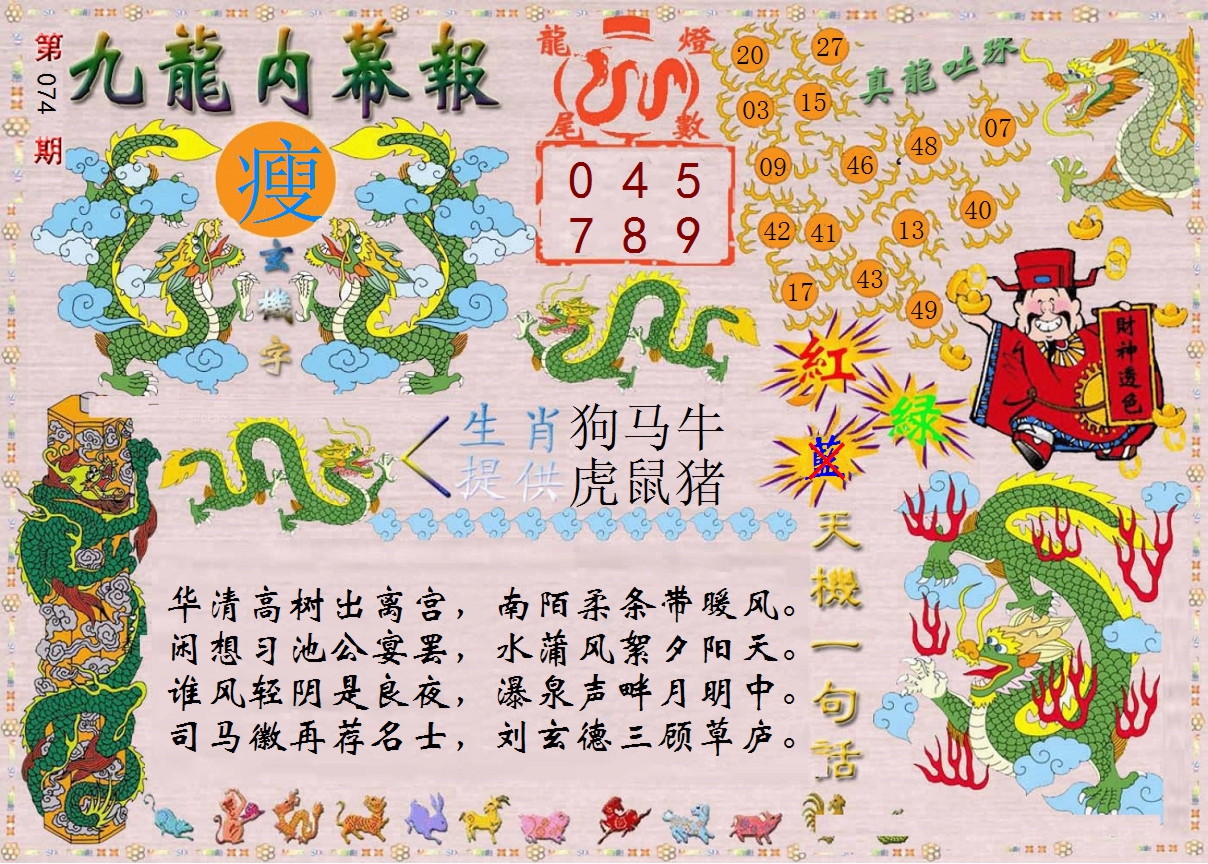 第074期
九龍内幕報
瘦
玄機字
龍燈尾數
0 4 5
7 8 9
真龍吐珠
20 27
03 15
48 07
09 46
42 41 13 40
17 43 49
紅
綠
藍
財神透色
生肖 狗马牛
提供 虎鼠猪
天機一句話
华清高树出离宫，南陌柔条带暖风。
闲想习池公宴罢，水蒲风絮夕阳天。
谁风轻阴是良夜，瀑泉声畔月明中。
司马徽再荐名士，刘玄德三顾草庐。